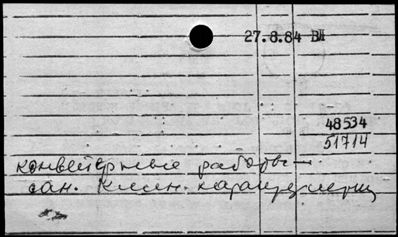 27.8.84 ВИ
48534
51714
конвейерные работы —
сан. клин. характ.